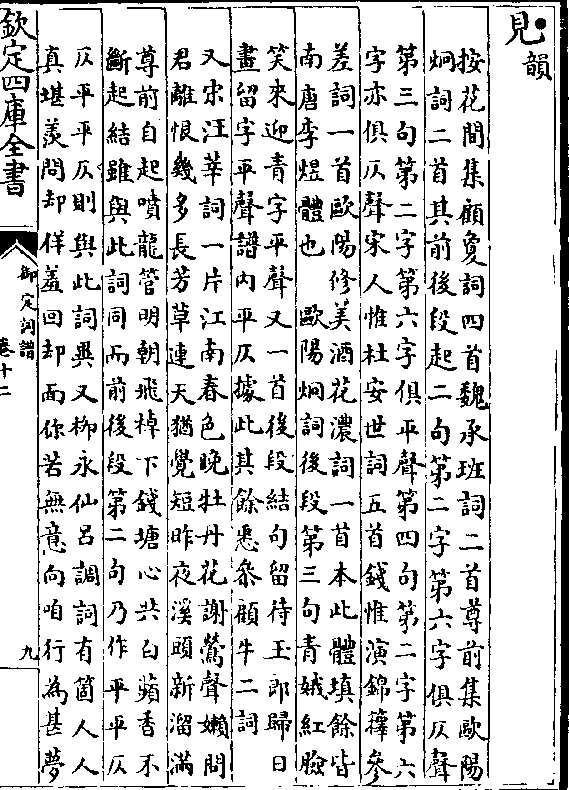 見韻
按花間集顧夐詞四首魏承班詞二首尊前集歐陽
烱詞二首其前後段起二句第二字第六字俱仄聲
第三句第二字第六字俱平聲第四句第二字第六
字亦俱仄聲宋人惟杜安世詞五首錢惟演錦籜參
差詞一首歐陽修美酒花濃詞一首本此體填餘皆
南唐李煜體也　歐陽烱詞後段第三句青娥紅臉
笑來迎青字平聲又一首後段結句留待玉郎歸日
畫留字平聲譜内平仄據此其餘悉參顧牛二詞
又宋汪莘詞一片江南春色晚牡丹花謝鶯聲嬾問
君離恨幾多長芳草連天猶覺短昨夜溪頭新溜滿
尊前自起噴龍管明朝飛棹下錢塘心共白蘋香不
斷起結雖與此詞同而前後段第二句乃作平平仄
仄平平仄則與此詞異又柳永仙呂調詞有箇人人
真堪羨問却佯羞回却面你若無意向咱行為甚夢
欽定四庫全書
御定詞譜
卷十二
九